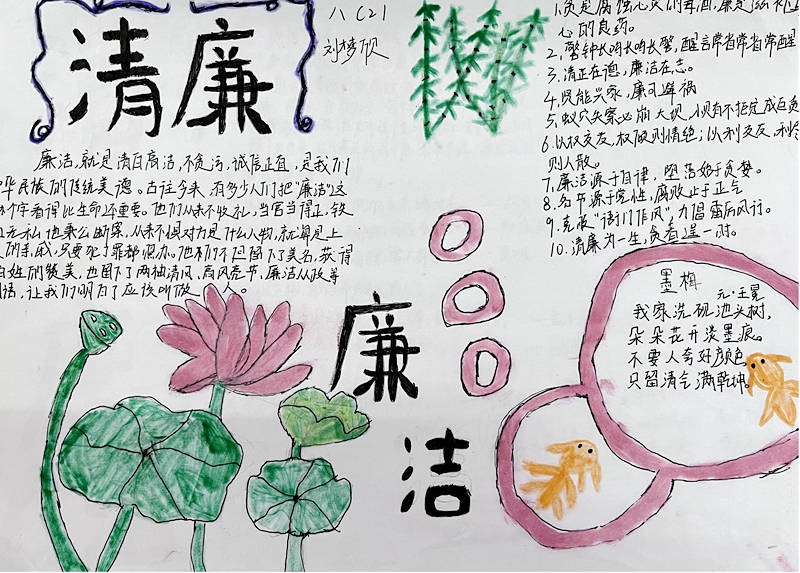 清廉
八(21
刘梦欣
廉洁,就是清白高洁,不贪污,诚信正直,是我们
华民族的传统美德。古往今来,有多少人们把“廉洁”这
个字看得比生命还重要。他们从来不收礼,当官当得正,铁
无私地秉公断案,从来不惧对方是什么人物,就算是上
的亲戚,只要犯了罪都照办。他们不但留下了美名,获得
百姓的赞美,也留下了两袖清风、高风亮节、廉洁从政等
让我们明白了应该叫做 人。
1.贪是腐蚀心灵的毒酒,廉是
心的良药。
2.警钟长鸣长鸣长警,醒言常省常省常醒
3.清正在德,廉洁在志。
4.贤能兴家,廉可避祸
5.蚁穴失察必崩大坝,
6.以权交友,权没则情绝;以利交友,利
则人散。
7.廉洁源于自律,堕落始于贪婪。
8.名节源于党性,腐败止于正气
9.克服“衙门作风”,力倡雷厉风行。
10.清廉为一生,贪看是一时。
墨梅
元·王冕
我家洗砚池头树,
朵朵花开淡墨痕。
不要人夸好颜色
只留清气满乾坤。
廉
洁